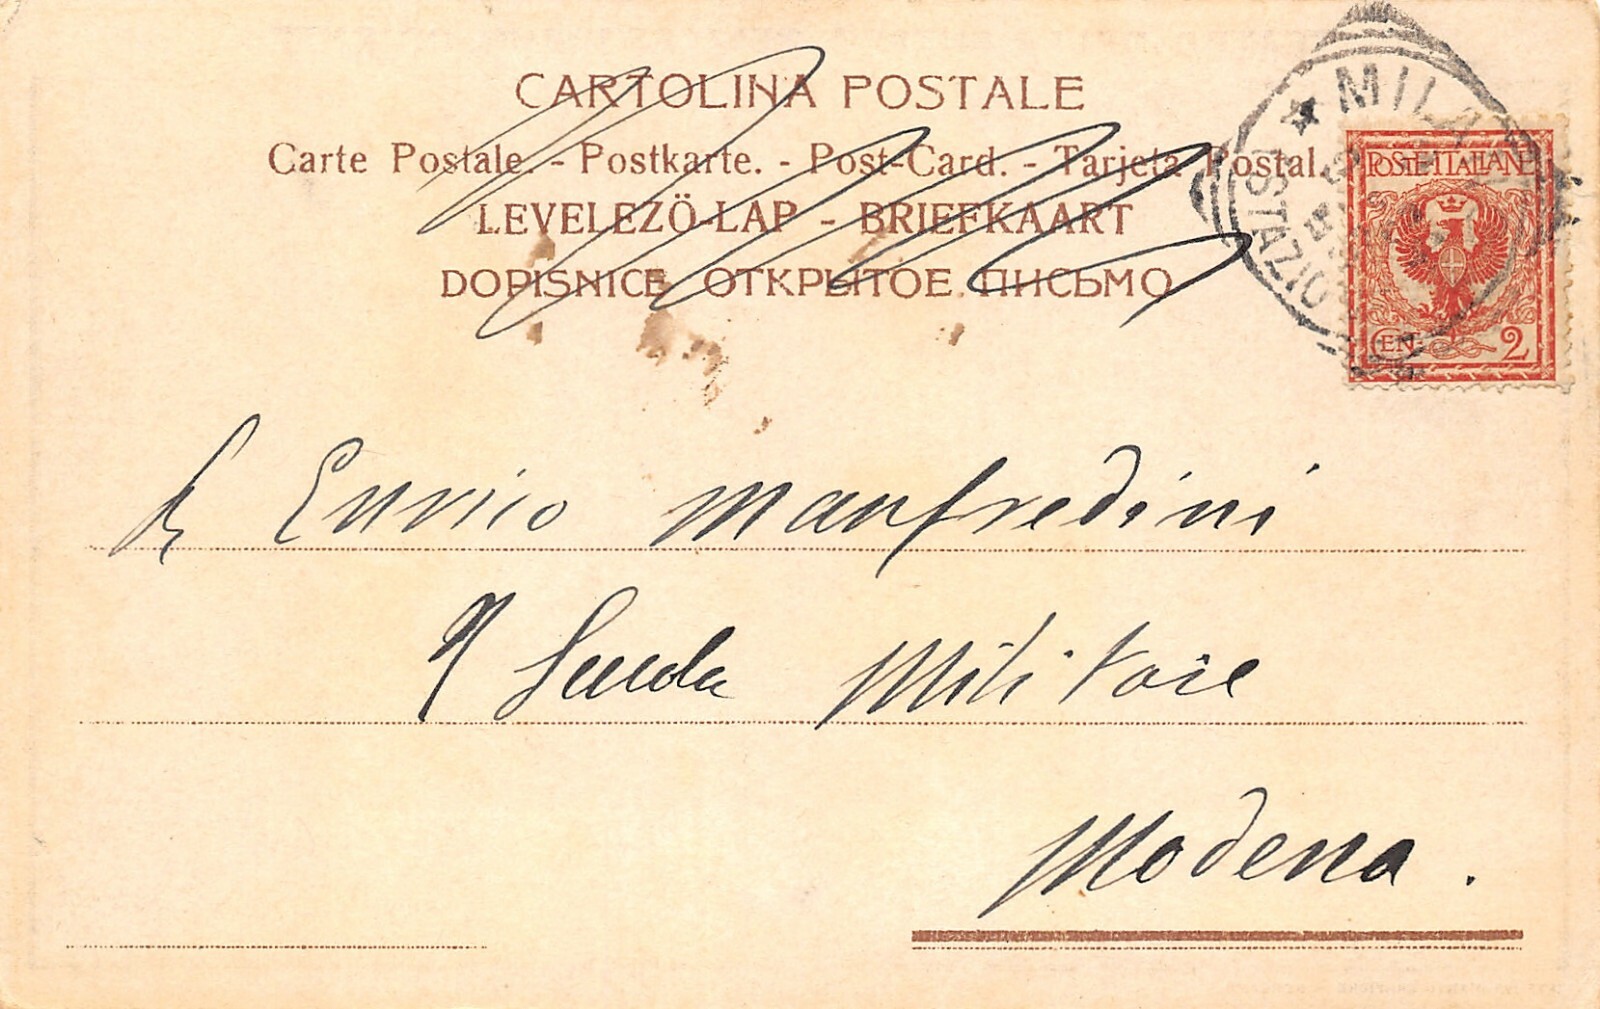 CARTOLINA POSTALE
Carte Postale. - Postkarte. - Post-Card. - Tarjeta Postal.
LEVELEZÖ-LAP - BRIEFKAART
DOPISNICE ОТКРЫТОЕ ПИСЬМО
MILANO
STAZIONE
POSTE ITALIANE
CEN. 2
Enrico Manfredini
Scuola Militare
Modena.